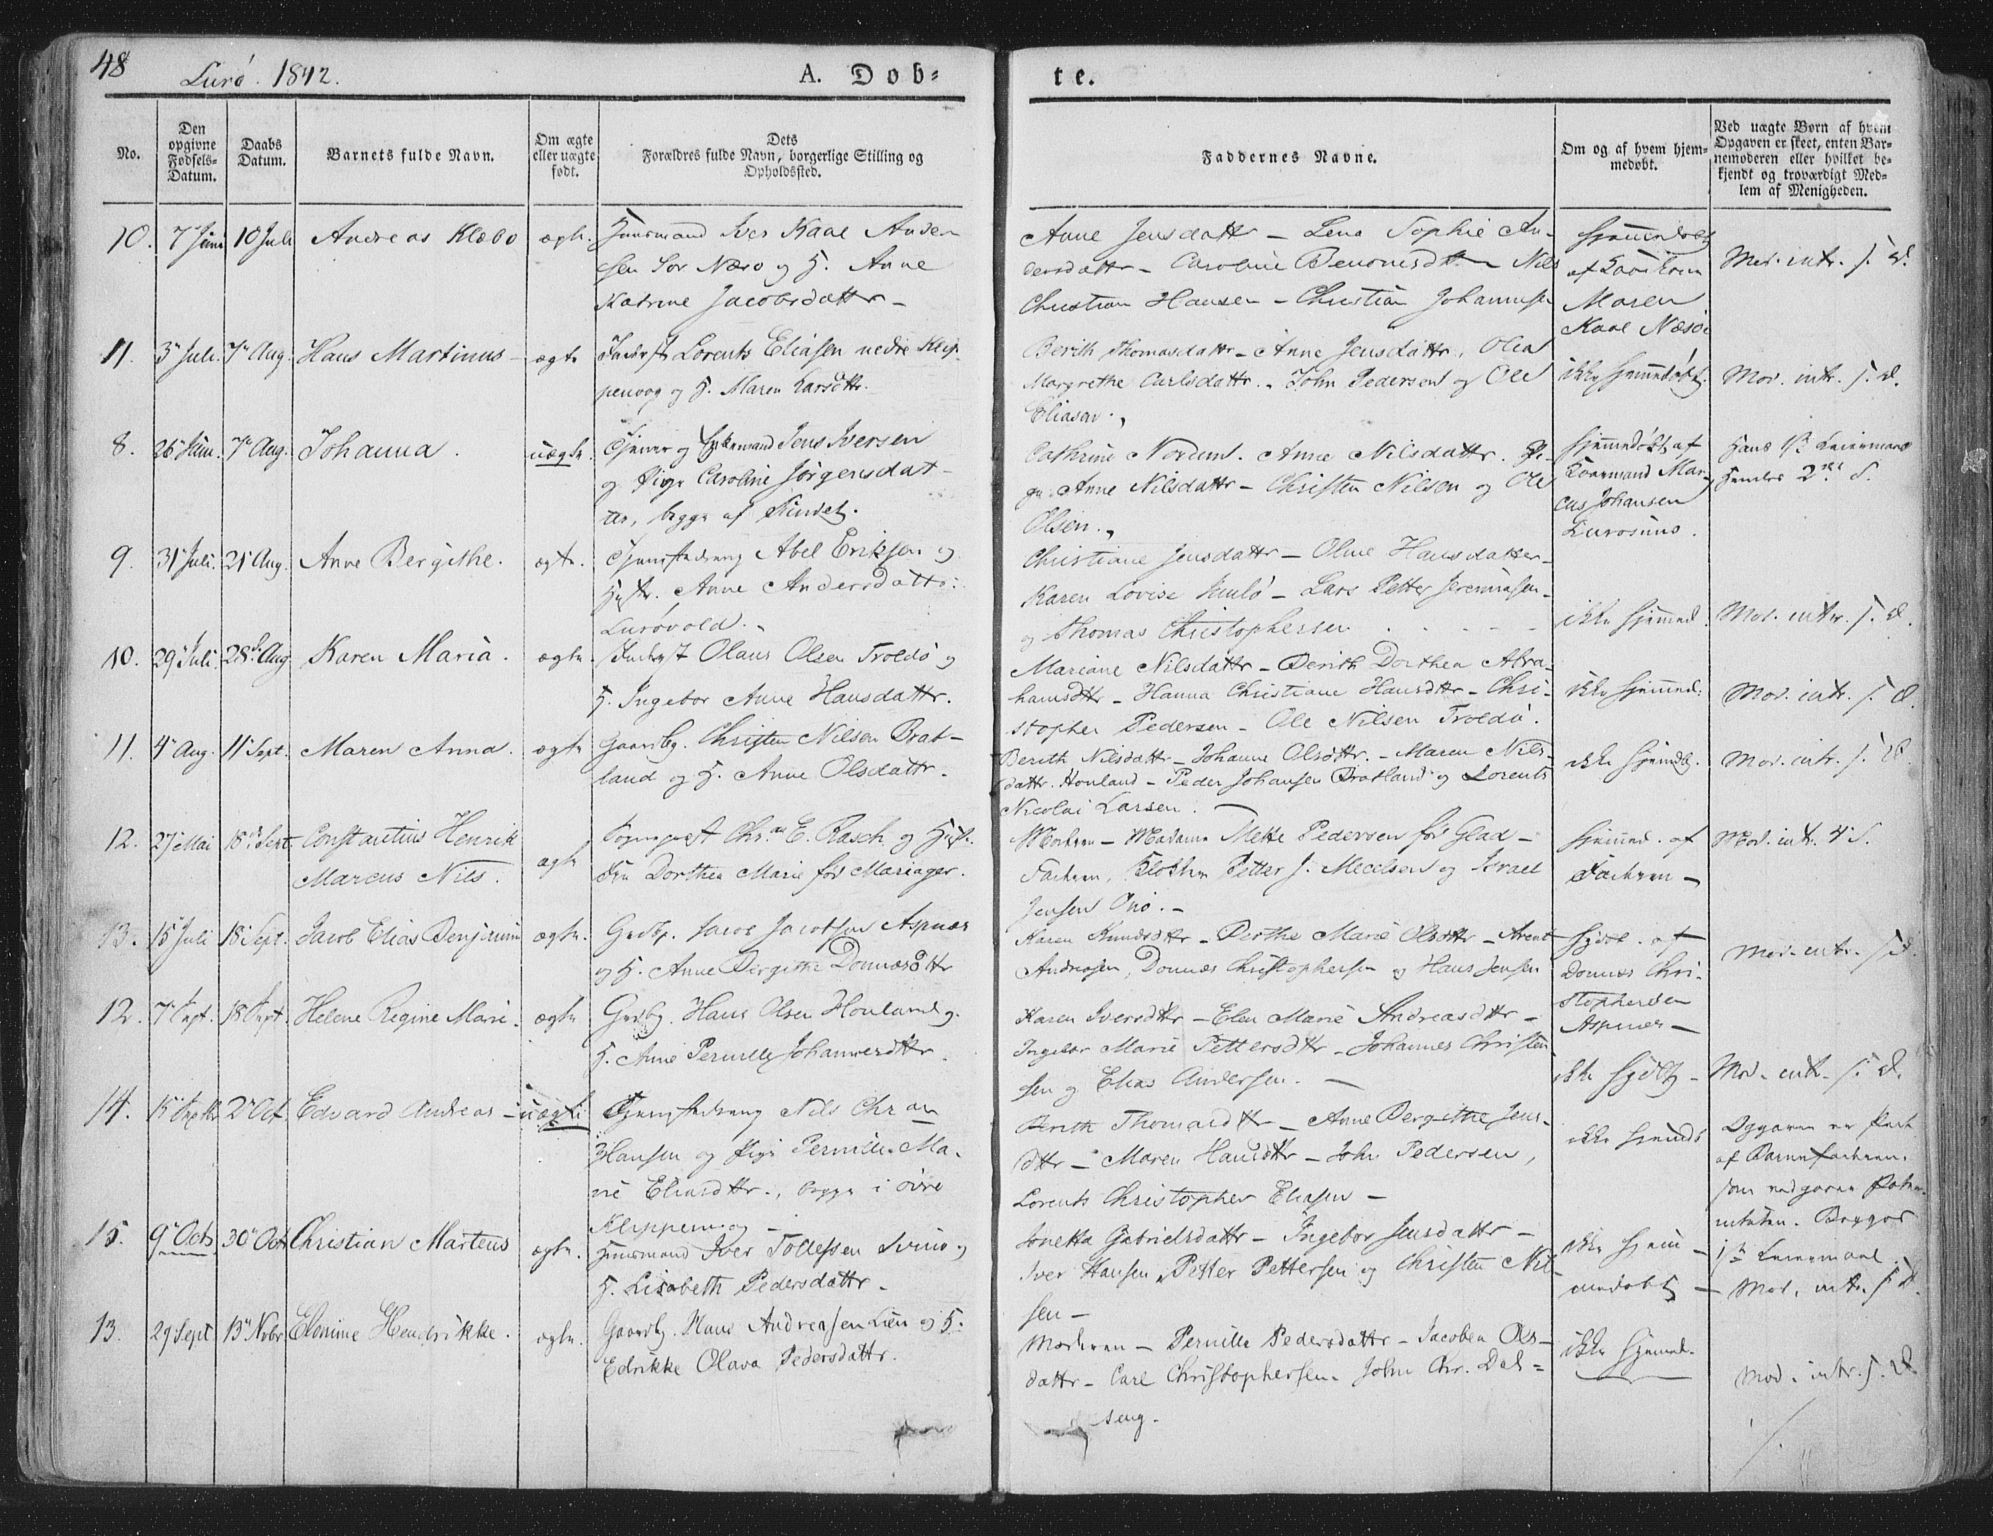 48
Lurö. 1842.
A. Dob-
te.
No.
Den opgivne Fødsels-Datum.
Daabs Datum.
Barnets fulde Navn.
Om ægte eller uægte født.
Dets Forældres fulde Navn, borgerlige Stilling og Opholdssted.
Faddernes Navne.
Om og af hvem hjemmedøbt.
Ved uægte Børn af hvem Opgaven er skeet, enten Barnemoderen eller hvilket bekjendt og troværdigt Medlem af Menigheden.
10. 7 Juni 10 Juli Andreas Klæbo ægte.
Huusmand Iver Kaal Ander-
sen Sör Næsö og H. Anne
Katrine Jacobsdattr -
Anne Jensdattr - Lena Sophie An-
dersdattr - Caroline Benonisdttr - Nils
Christian Hansen - Christian Johannesen
Hjemmedöbt
af
Maren
Kaal Næsöe
Mod. intr. s. D.
11. 3 Juli. 7 Aug. Hans Martinus - ægte
Inderst Lorents Eliasen nedre Klip-
penvog og H. Maren Larsdttr.
Berith Thomasdattr - Anne Jensdattr, Olea
Margrethe Carlsdattr. - John Pedersen og Ole
Eliasen.
ikke hjemmedöbt.
Mod. intr. s. D.
8. 26 Juni. 7 Aug. Johanna. uægte.
Tjener og Enkemand Jens Iversen
og Pige Caroline Jörgensdat-
ter, begge af Stuvdet.
Cathrine Nordum. Anne Nilsdattr. Pi-
ge Anne Nilsdattr - Christen Nilsen og Ole
Olsen.
hjemmedöbt af
Qvænmand Mar-
cus Johansen
Lurosund.
Hans 1ste Leiermaal
Hendes 2det d.
9. 31 Juli. 21 Aug. Anne Bergithe. ægte.
Tjenestedreng Abel Eriksen og
Hustr. Anne Andersdattr
Lurövold.
Christiane Jensdattr - Oline Hansdatter -
Karen Lovise - Lars Petter Jeremiasen -
og Thomas Christophersen
ikke hjemmed.
Mod. intr. s. D.
10. 29 Juli 28 Aug Karen Maria. ægte
Inderst Olaus Olsen Troldö og
H. Ingebor Anne Hansdattr.
Mariane Nilsdattr - Berith Dorthea Abra-
hamsdttr - Hanna Christiane Hansdttr - Chri-
stopher Pedersen - Ole Nilsen Troldö.
ikke hjemmed.
Mod. intr. s. D.
11. 4 Aug. 11 Sept. Maren Anna. ægte
Gaardbg. Christen Nilsen Brat-
land og H. Anne Olsdattr.
Berith Nilsdattr - Johanne Olsdttr. - Maren Nils-
dattr. Houland - Peder Johansen Bratland og Lorents
Nicolai Larsen.
ikke hjemdb.
Mod. intr. s. D.
12. 27 Mai 18 Sept Constantius Henrik
Marcus Nils. ægte
Sogneprest Chr.an E. Rasch og Hust.
Fru Dorthea Marie föd Mariager.
Moderen - Madame Mette Pedersen föd Glad -
Faderen, Klokker Petter J. Meelsen og Israel
Jensen Onö. -
hjemmed. af
Faderen -
Mod. intr. 4 S.
13. 15 Juli 18 Sept. Jacob Elias Benjamin ægte.
Grdbg. Jacob Jacobsen Aspnæs
og H. Anne Bergithe Donnæsdttr
Karen Knudsdttr - Berthe Marie Olsdttr - Arent
Andreasen, Donnæs Christophersen og Hans Jensen
Hjdbt. af
Donnæs Chri-
stophersen
Aspnæs -
Mod. intr. s D.
12. 7 Sept. 18 Sept. Helene Regine Marie. ægte
Grdbg. Hans Olsen Houland og
H. Anne Pernille Johannesdttr.
Karen Iversdttr - Elen Marie Andreasdttr -
Ingebor Marie Pettersdttr - Johannes Christen
sen og Elias Andersen. -
ikke hjdbt -
Mod. intr. s. D.
14. 15 Septbr 2 Oct. Edvard Andreas - uægte
Tjenestedreng Nils Chr.an
Hansen og Pige Pernille Ma-
rie Eliasdttr., begge i övre
Klippenvog -
Berith Thomasdttr - Anne Bergithe Jens-
dttr - Maren Hansdttr - John Pedersen,
Lorents Christopher Eliasen -
ikke hjemdb
Opgaven er skeet
af Barnefaderen,
som vedgaar Pater-
niteten. Begges
1ste Leiermaal
15. 9 Octb 30 Oct Christian Marteus ægte.
Huusmand Iver Tollefsen Svinö og
H. Lisabeth Pedersdattr -
Jonetta Gabrielsdattr - Ingebor Jensdattr -
Iver Hansen, Petter Pettersen og Christen Nil
sen -
ikke hjem-
medöbt -
Mod. intr. s D.
13. 29 Sept 13 Novbr Elenine Hendrikke. ægte.
Gaardbg. Hans Andreasen Lien og H.
Edrikke Olava Pedersdattr.
Moderen - Pernille Pedersdattr - Jacobea Ols-
dattr - Carl Christophersen. John Chr. Dals-
eng.
ikke hjemmed.
Mod. intr. s. D.